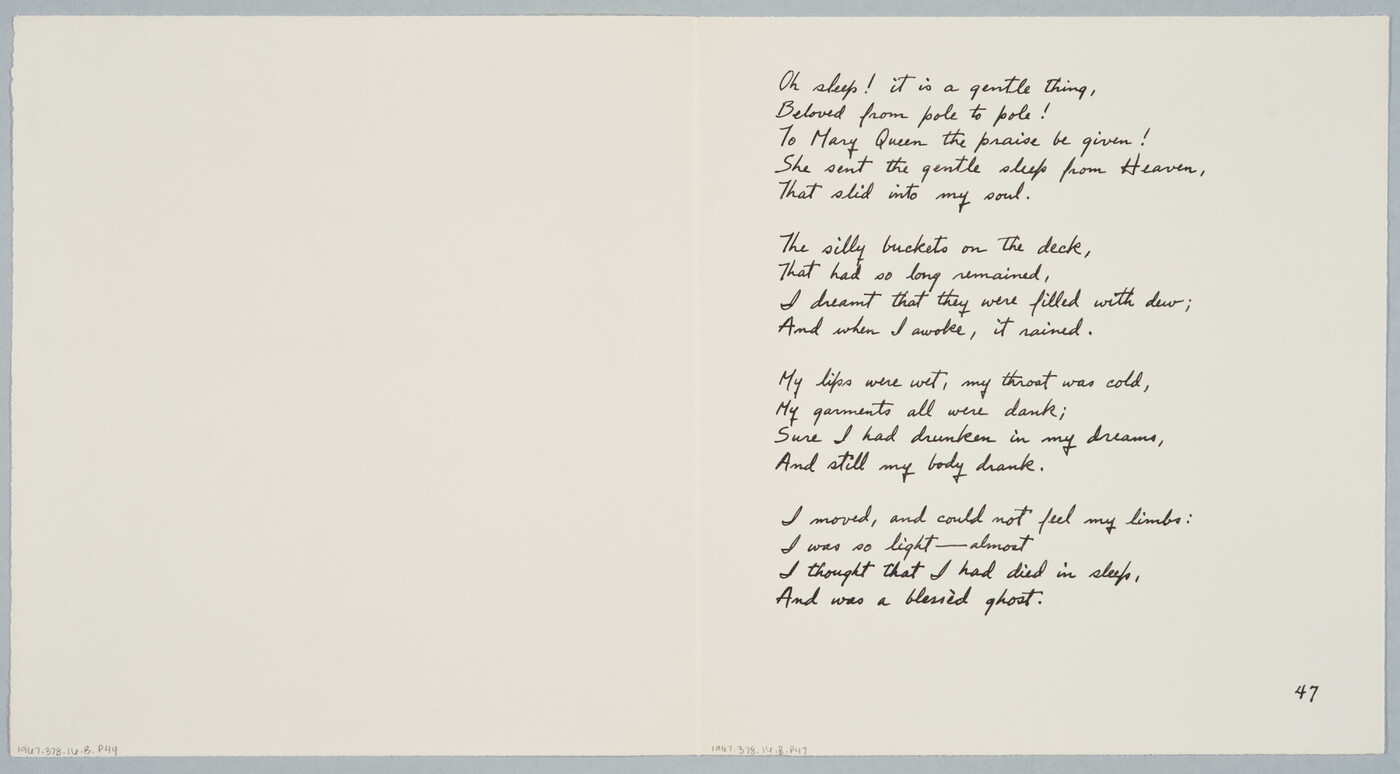 Oh sleep! it is a gentle thing,
Beloved from pole to pole!
To Mary Queen the praise be given!
She sent the gentle sleep from Heaven,
That slid into my soul.
The silly buckets on the deck,
That had so long remained,
I dreamt that they were filled with dew;
And when I awoke, it rained.
My lips were wet, my throat was cold,
My garments all were dank;
Sure I had drunken in my dreams,
And still my body drank.
I moved, and could not feel my limbs:
I was so light—almost
I thought that I had died in sleep,
And was a blessèd ghost.
47
1967.378.16.B.P44
1967.378.16.B.P47